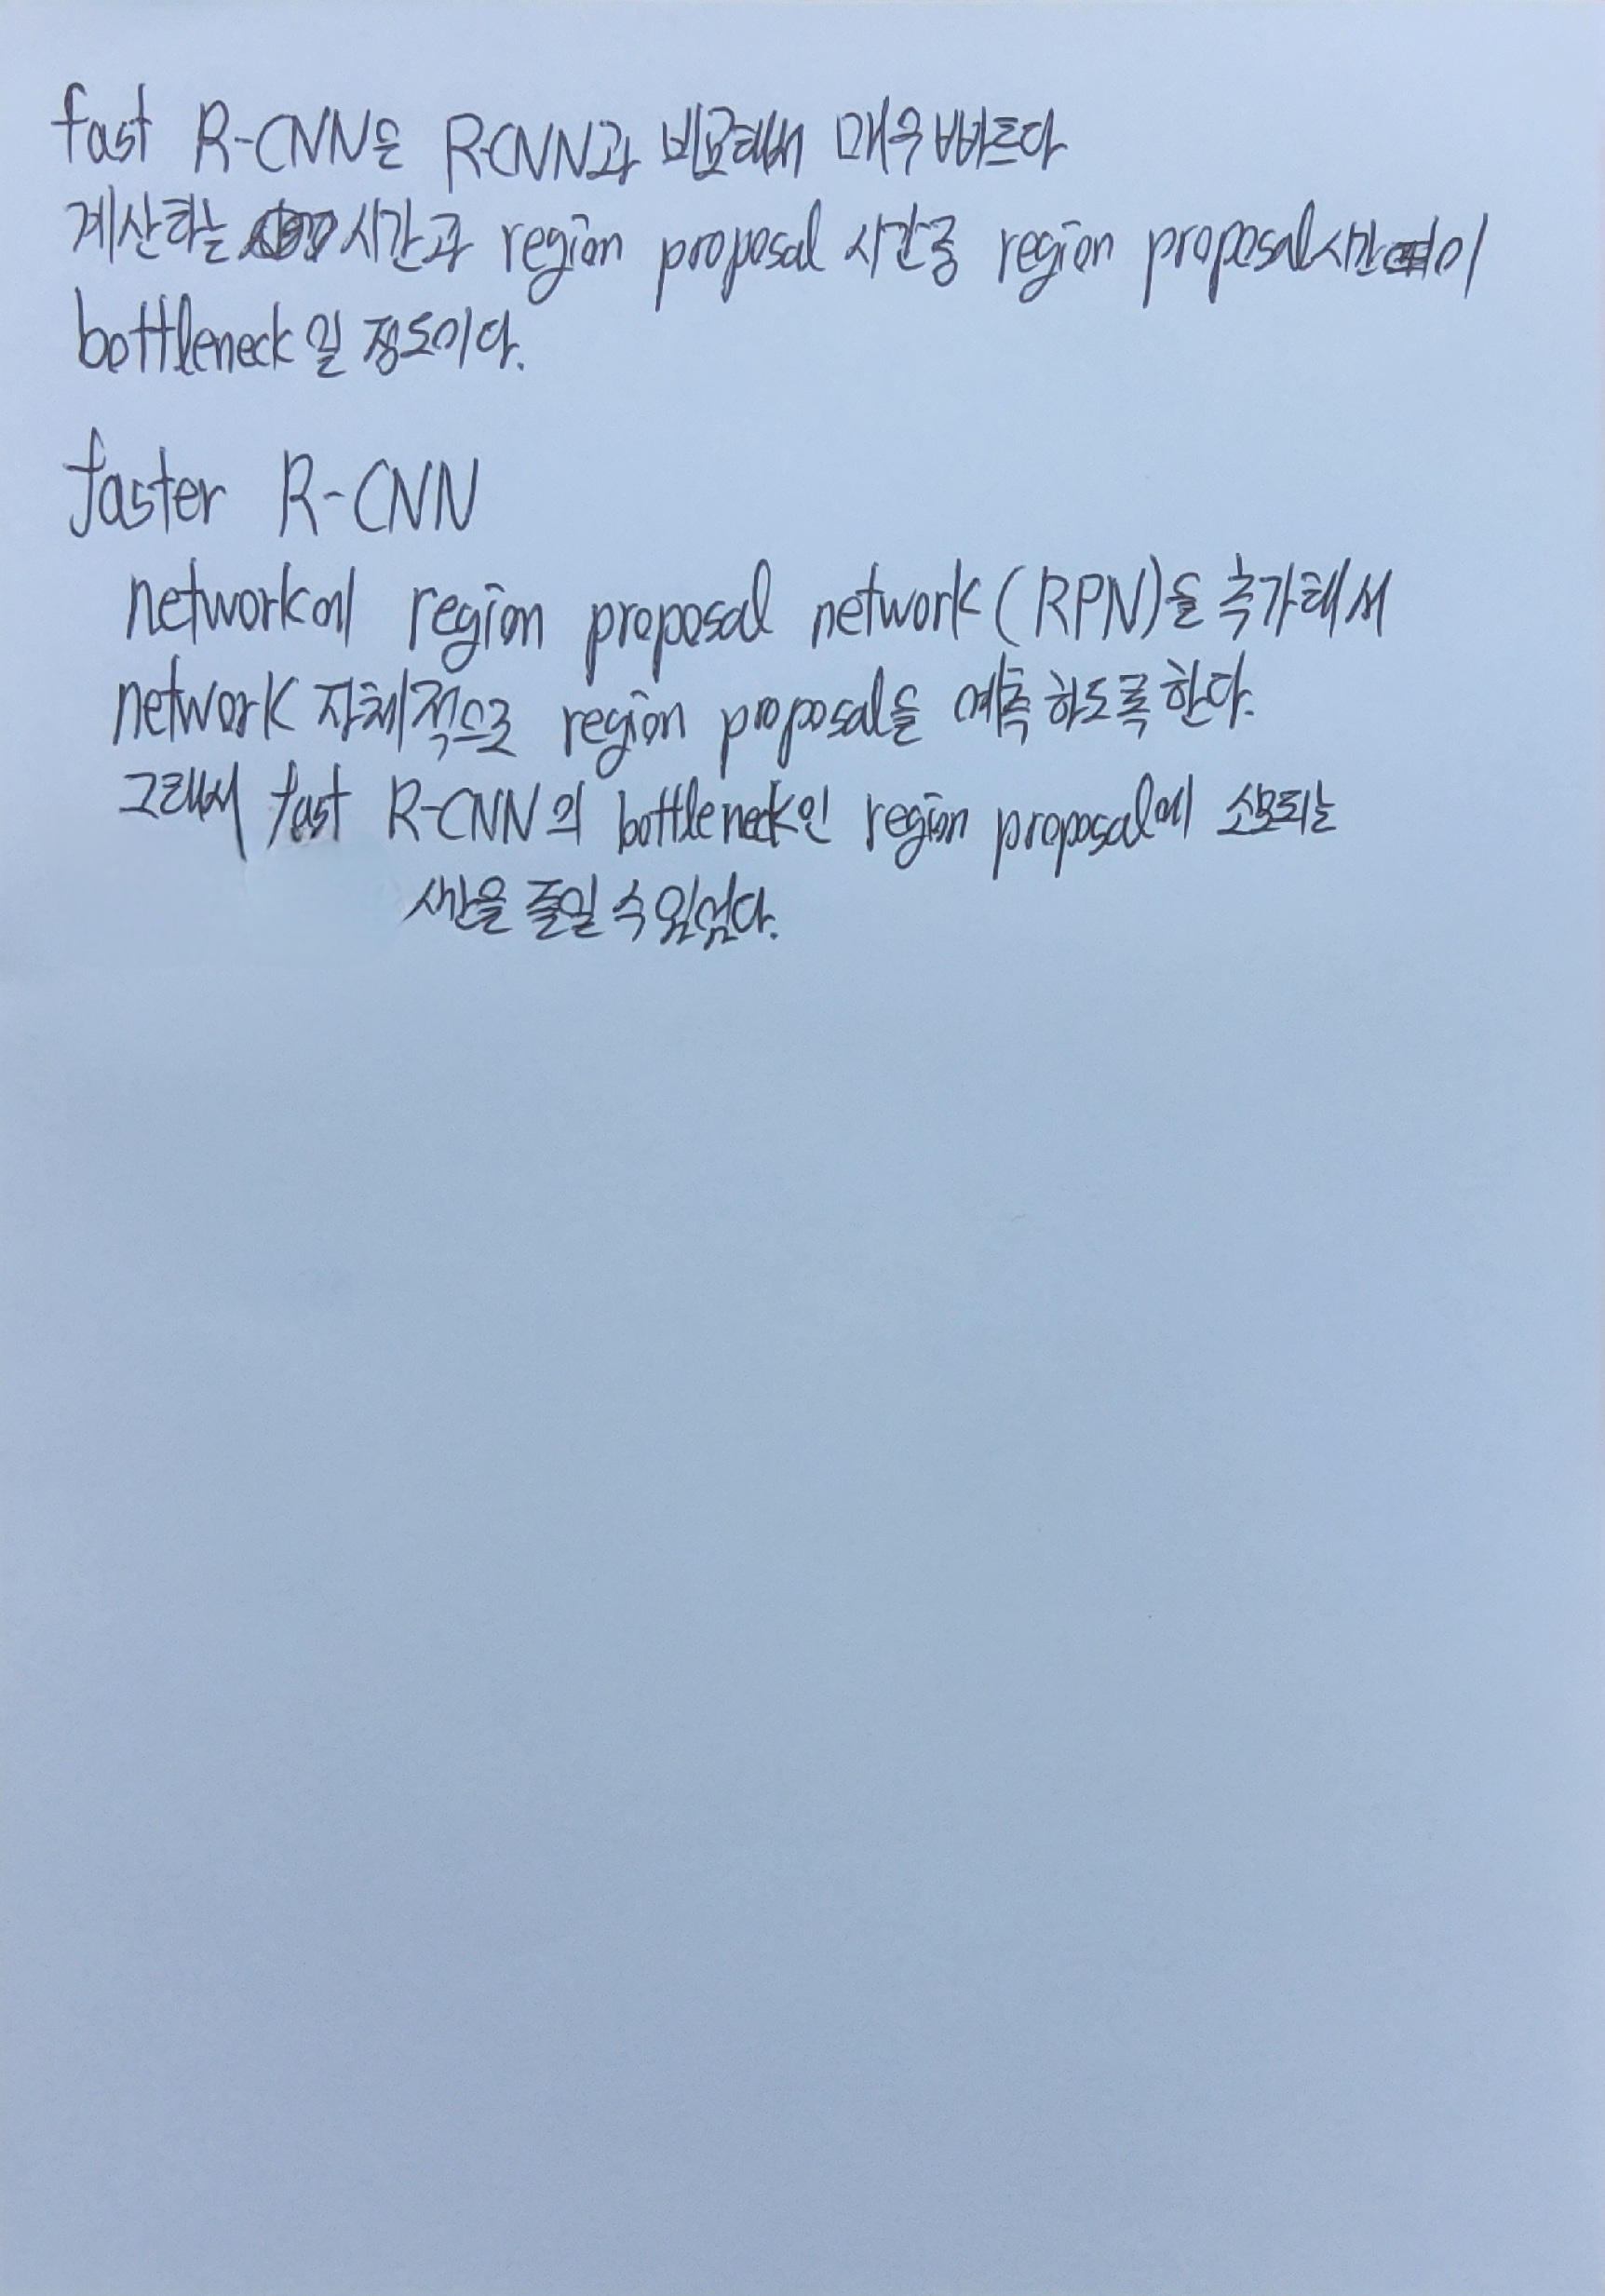 fast R-CNN은 R-CNN과 비교해봐 매우 빠르다
계산하는 시간과 region proposal 시간중 region proposal시간이
bottleneck일 정도이다.
faster R-CNN
network에 region proposal network (RPN)을 추가해서
network 자체적으로 region proposal을 예측하도록 한다.
그래서 fast R-CNN의 bottleneck인 region proposal에 소모되는
시간을 줄일 수 있었다.